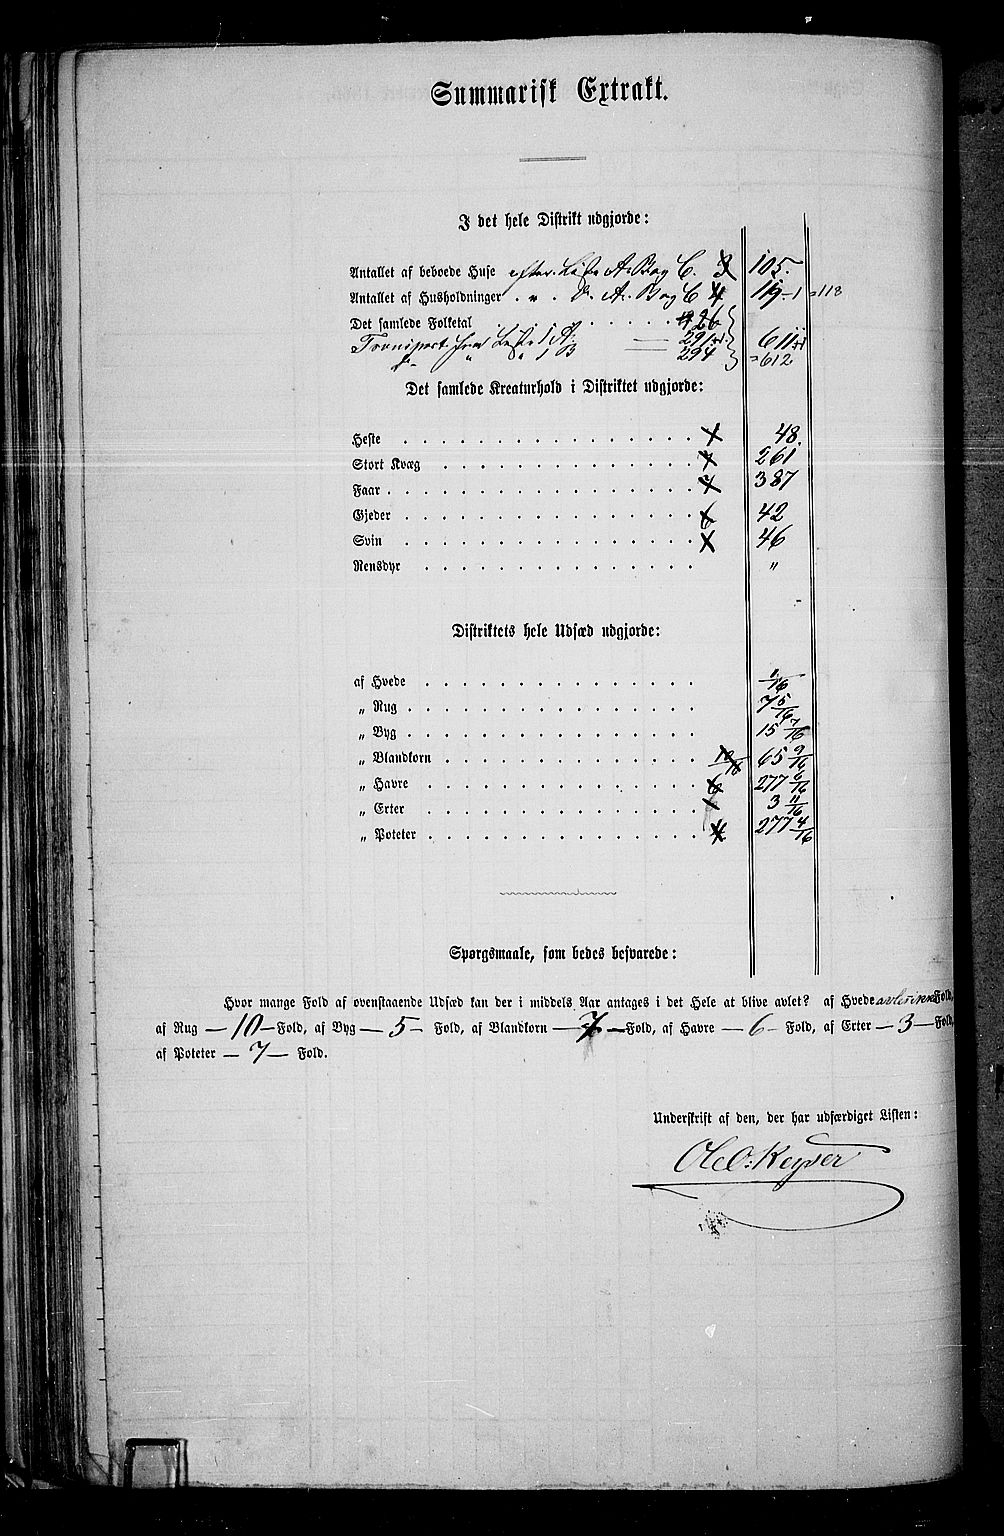 Summarisk Extrakt.
I det hele Distrikt udgjorde:
Antallet af beboede Huse efter Liste A. B og C. 3 105.
Antallet af Husholdninger . „ . D. A. B og C 4 119-1 =118
Det samlede Folketal . . . . . . . 26
Transport fra Liste 1 A. 291+1 611+1
do „ „ 1 B 294 =612
Det samlede Kreaturhold i Distriktet udgjorde:
Heste . . . . . . . . . . . . . . . 48.
Stort Kvæg . . . . . . . . . . . . . 261
Faar . . . . . . . . . . . . . . . . 387
Gjeder . . . . . . . . . . . . . . . 42
Svin . . . . . . . . . . . . . . . 46
Rensdyr . . . . . . . . . . . . . . „
Distriktets hele Udsæd udgjorde:
af Hvede . . . . . . . . . . . . . . /16
„ Rug . . . . . . . . . . . . . . . 7 5/16
„ Byg . . . . . . . . . . . . . . . 15 7/16
„ Blandkorn . . . . . . . . . . . . . 65 9/16
„ Havre . . . . . . . . . . . . . . 277 6/16
„ Erter . . . . . . . . . . . . . . 3 11/16
„ Poteter . . . . . . . . . . . . . . 277 4/16
Spørgsmaale, som bedes besvarede:
Hvor mange Fold af ovenstaaende Udsæd kan der i middels Aar antages i det Hele at blive avlet? af Hvede avles ikke Fold,
af Rug — 10 — Fold, af Byg — 5 — Fold, af Blandkorn — 7 — Fold, af Havre — 6 — Fold, af Erter — 3 — Fold,
af Poteter — 7 — Fold.
Underskrift af den, der har udfærdiget Listen:
Ole O: Keyser